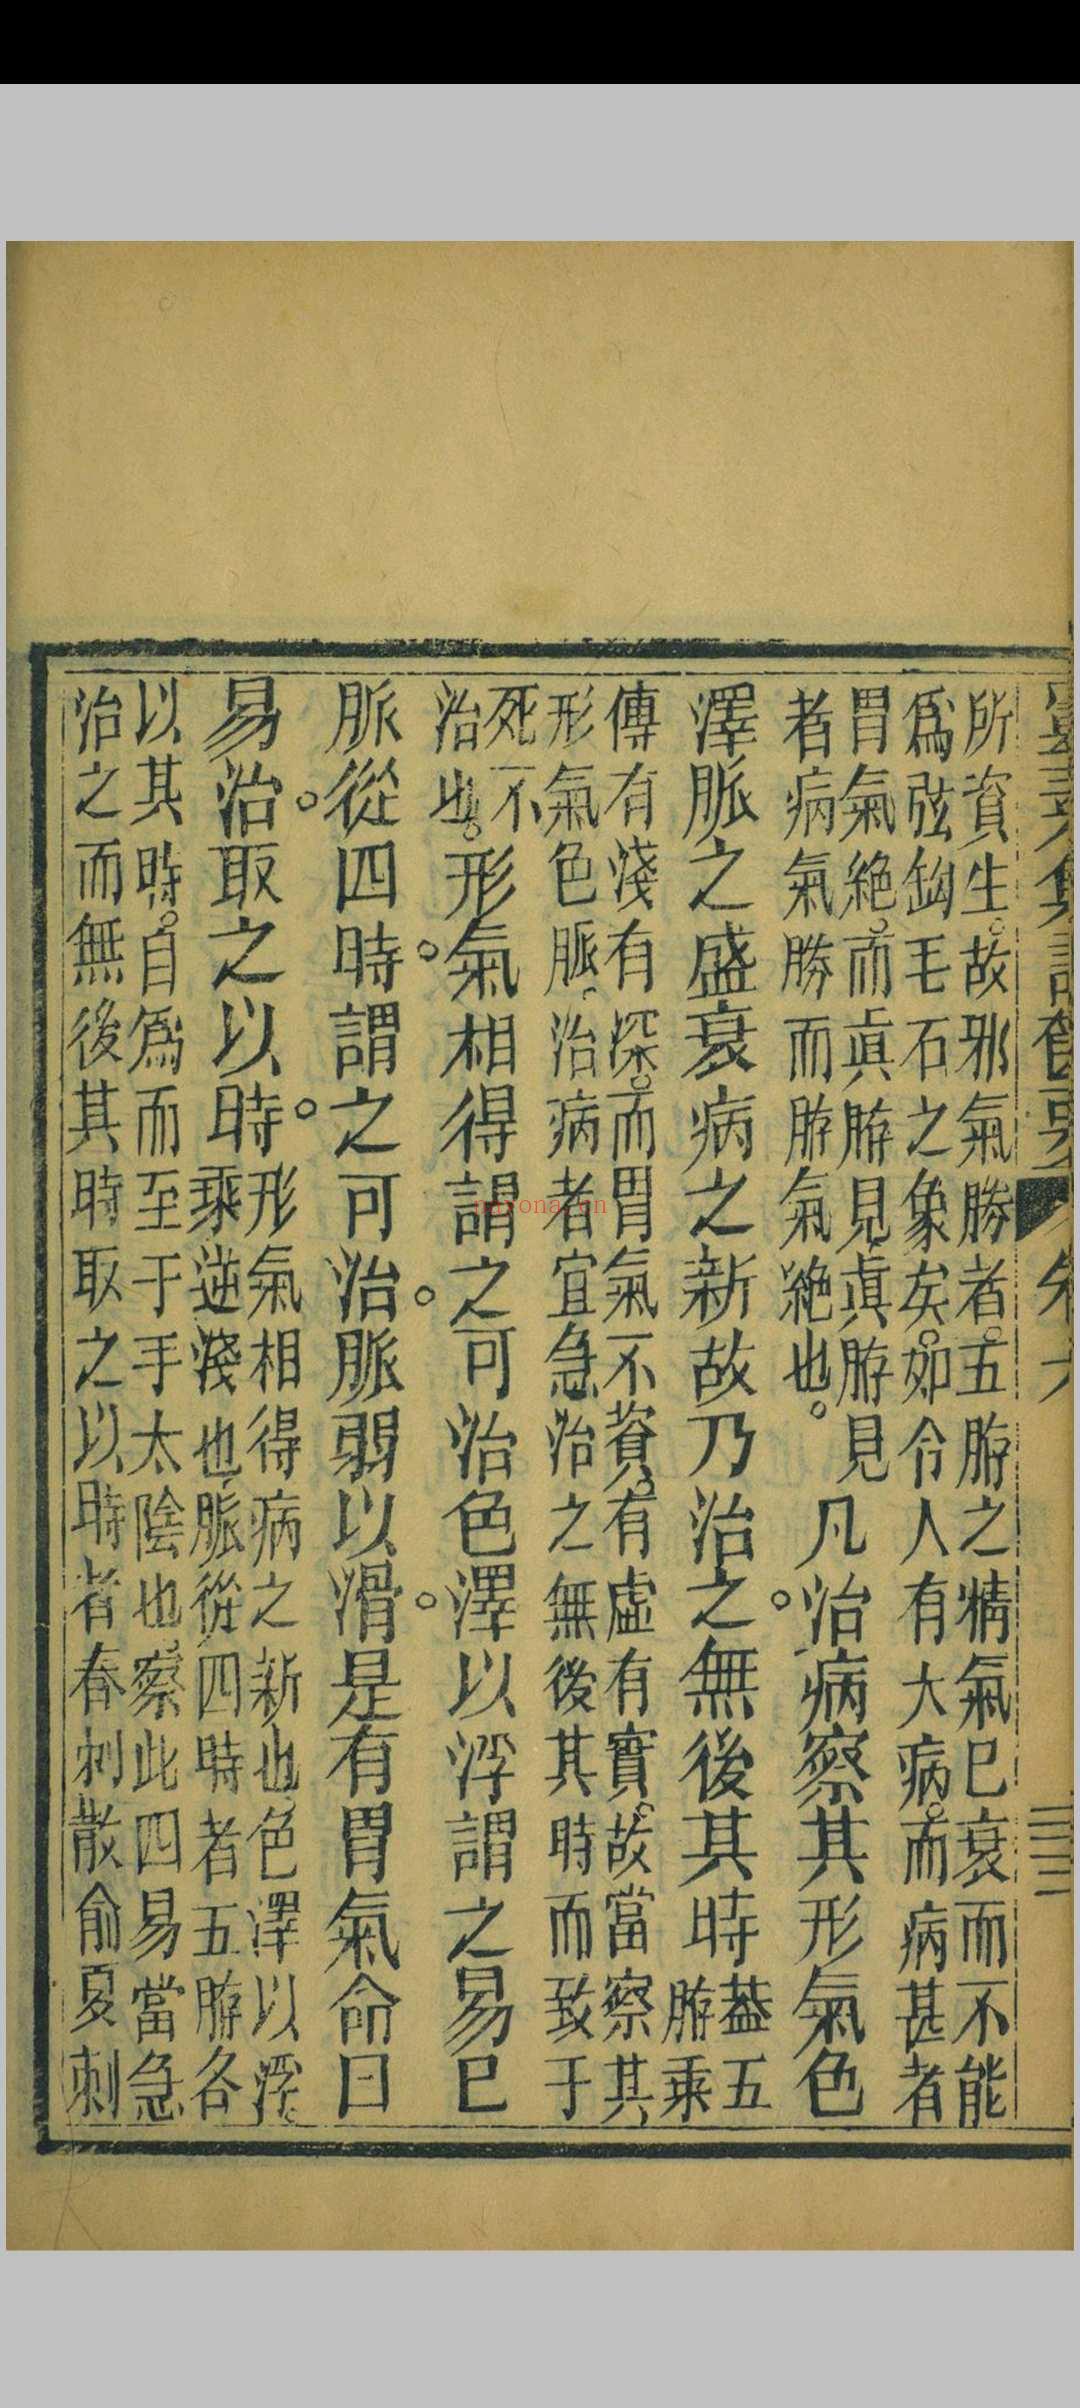 所資生。故邪氣勝者。五臟之精氣已衰而不能
爲弦鈎毛石之象矣。如令人有大病。而病甚者
胃氣絕。而眞臟見、眞臟見
者病氣勝而臟氣絕也。
凡治病察其形氣色
澤脈之盛衰病之新故乃治之。無後其時
葢五
臟乘
傳有淺有深。而胃氣不資。有虛有實。故當察其、
形氣色脈、治病者宜急治之無後其時而致于
死不
治也。
形氣相得謂之可治色澤以浮謂之易已
脈從四時。謂之可治。脈弱以滑。是有胃氣命曰
易治。取之以時。
形氣相得病之新也、色澤以浮。
乘逆淺也、脈從四時者五臟各
以其時。自爲而至于手太陰也、察此四易當急
治之而無後其時取之以時者春刺散俞夏刺
nayona.cn